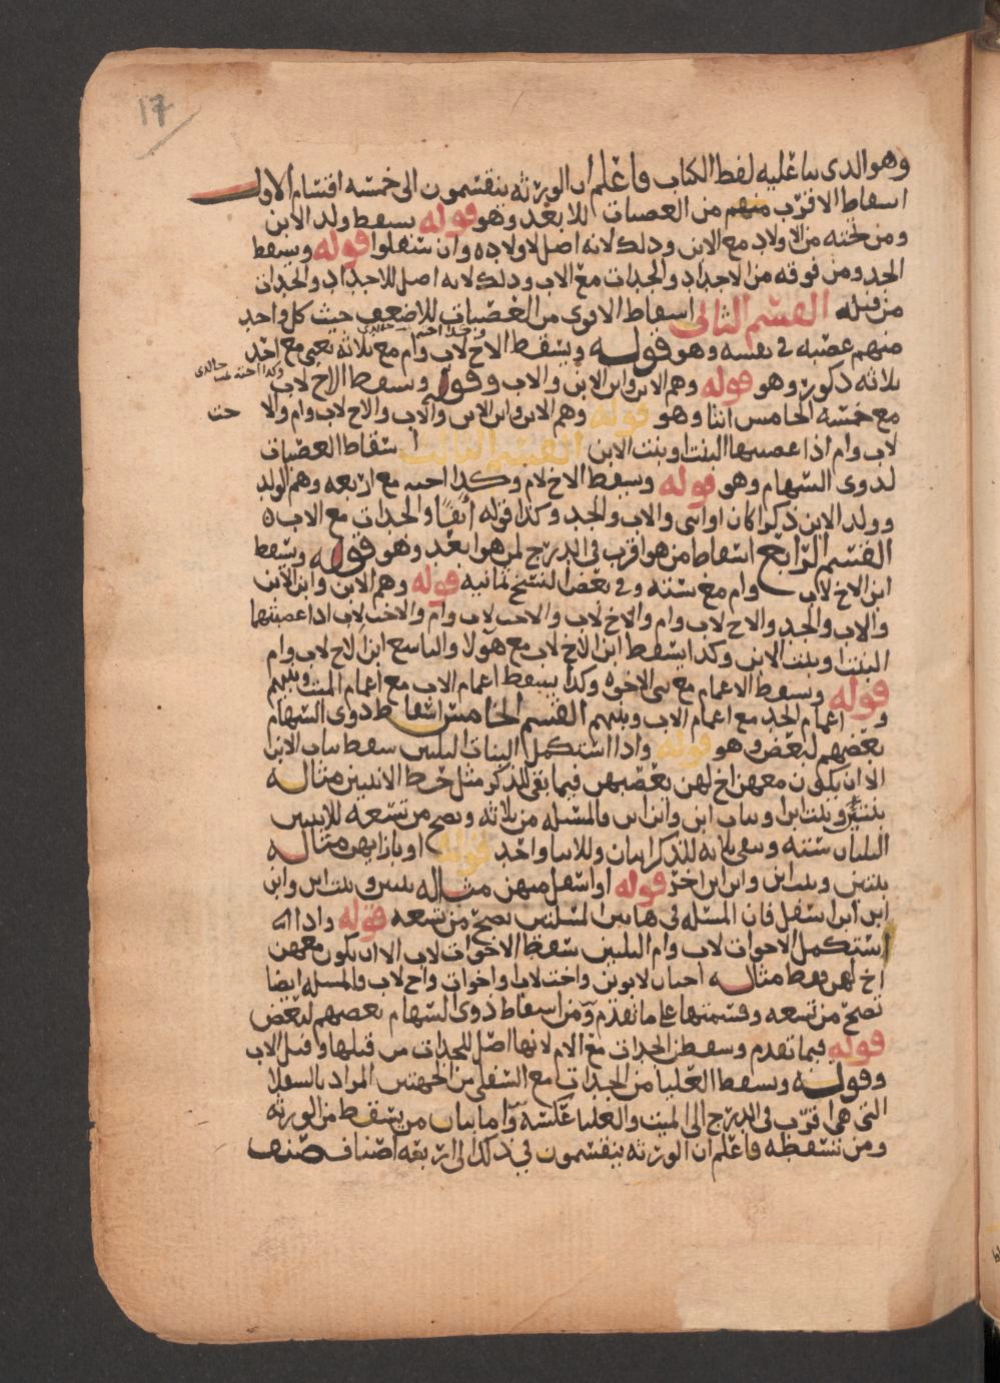 17
وهو الدى بنا عليه لفظ الكتاب فاعلم ان الورثه ينقسمون الى خمسه اقسام الاول
اسقاط الاقرب منهم من العصبات للابعد وهو قوله يسقط ولد الابن
ومن تحته من الاولاد مع الابن ودلك لانه اصل لاولاده وان سفلوا قوله ويسقط
الجد ومن فوقه من الاجداد والجدات مع الاب ودلك لانه اصل للاجداد والجدات
من قبله القسم الثانى اسقاط الاقوى من العصبات للاضعف حيث كل واحد
منهم عصبه فى نفسه وهو قوله ويسقط الاخ لاب وام مع ثلاثه يعنى مع احد
ثلاثه ذكور وهو قوله وهم الابن وابن الابن والاب وقوله ويسقط الاخ لاب
مع خمسه الخامس انثا وهو قوله وهم الابن وابن الابن والاب والاخ لاب وام والا خت
لاب وام اذا عصبها البنت او بنت الابن القسم الثالث اسقاط العصبات
لذوى السهام وهو قوله ويسقط الاخ لام وكذا اخته مع اربعه وهم الولد
وولد الابن ذكرا كان او انثى والاب والجد وكذا قوله انفا والجدات مع الاب ه
القسم الرابع اسقاط من هو اقرب فى الدرج لمن هو ابعد وهو قوله ويسقط
ابن الاخ لاب وام مع سته وفى بعض النسخ ثمانيه قوله وهم الابن وابن الابن
والاب والجد والاخ لاب وام والاخ لاب والاخت لاب وام والاخت لاب اذا عصبتها
البنت او بنت الابن وكذا يسقط ابن الاخ لاب مع هولا والتاسع ابن الاخ لاب وام
قوله ويسقط الاعمام مع بنى الاخوه وكذا يسقط اعمام الاب مع اعمام الميت وبنيهم
و اعمام الجد مع اعمام الاب وبنيهم القسم الخامس اسقاط ذوى السهام
بعضهم لبعض وهو قوله واذا استكمل البنات الثلثين سقط بنات الابن
الا ان يكون معهن اخ لهن يعصبهن فيما بقى للذكر مثل حظ الانثيين مثاله
بنتين وبنت ابن وبنات ابن وابن ابن فالمسئله من ثلاثه وتصح من تسعه للابنتين
الثلثان سته وبقى ثلاثه للذكر اثنان وللانثا واحد قوله او بازايهن مثاله
بنتين وبنت ابن وابن ابن اخر قوله او اسفل منهن مثاله بنتين وبنت ابن وابن
ابن ابن اسفل فان المسئله فى هاتين المسئلتين تصح من تسعه قوله واذا
استكمل الاخوات لاب وام الثلثين سقط الاخوات لاب الا ان يكون معهن
اخ لهن فقط مثاله اختان لابوين واخت لاب واخوات واخ لاب والمسئله ايضا
تصح من تسعه وقسمتها على ما تقدم ومن اسقاط ذوى السهام بعضهم لبعض
قوله فيما تقدم وسقطن الجدات مع الام لانها اصل للجدات من قبلها وقبل الاب
وقوله وتسقط العليا من الجدات مع السفلى من الجهتين المراد بالسفلا
التى هى اقرب فى الدرج الى الميت والعليا عكسه واما بيان من يسقط من الورثه
ومن تسقطه فاعلم ان الورثه ينقسمون فى ذلك الى اربعه اصناف صنف